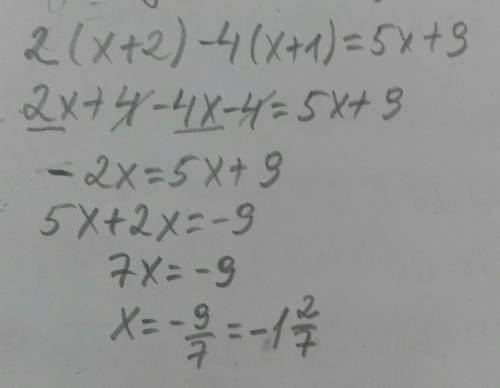 2(x+2)-4(x+1)=5x+9
2x+4-4x-4=5x+9
-2x=5x+9
5x+2x=-9
7x=-9
x=-9/7=-1 2/7